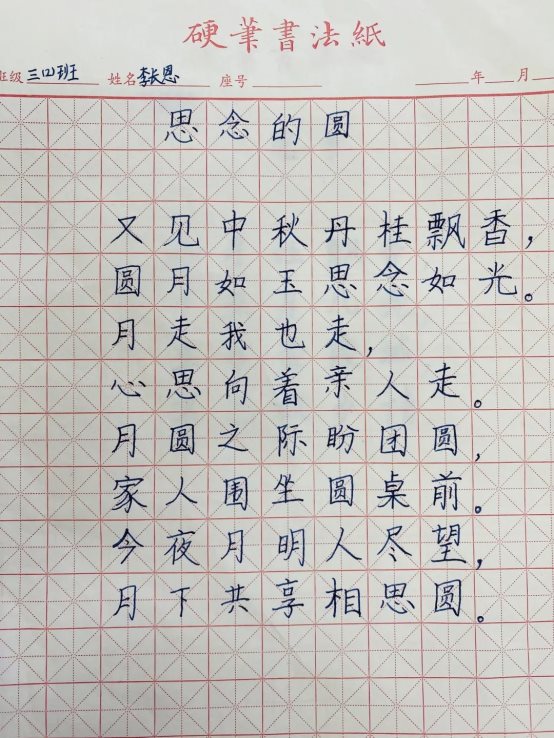 硬筆書法紙
班级 三(2)班 姓名 李长恩 座号 年 月
思念的圆
又见中秋丹桂飘香,
圆月如玉思念如光。
月走我也走,
心思向着亲人走。
月圆之际盼团圆,
家人围坐圆桌前。
今夜月明人尽望,
月下共享相思圆。